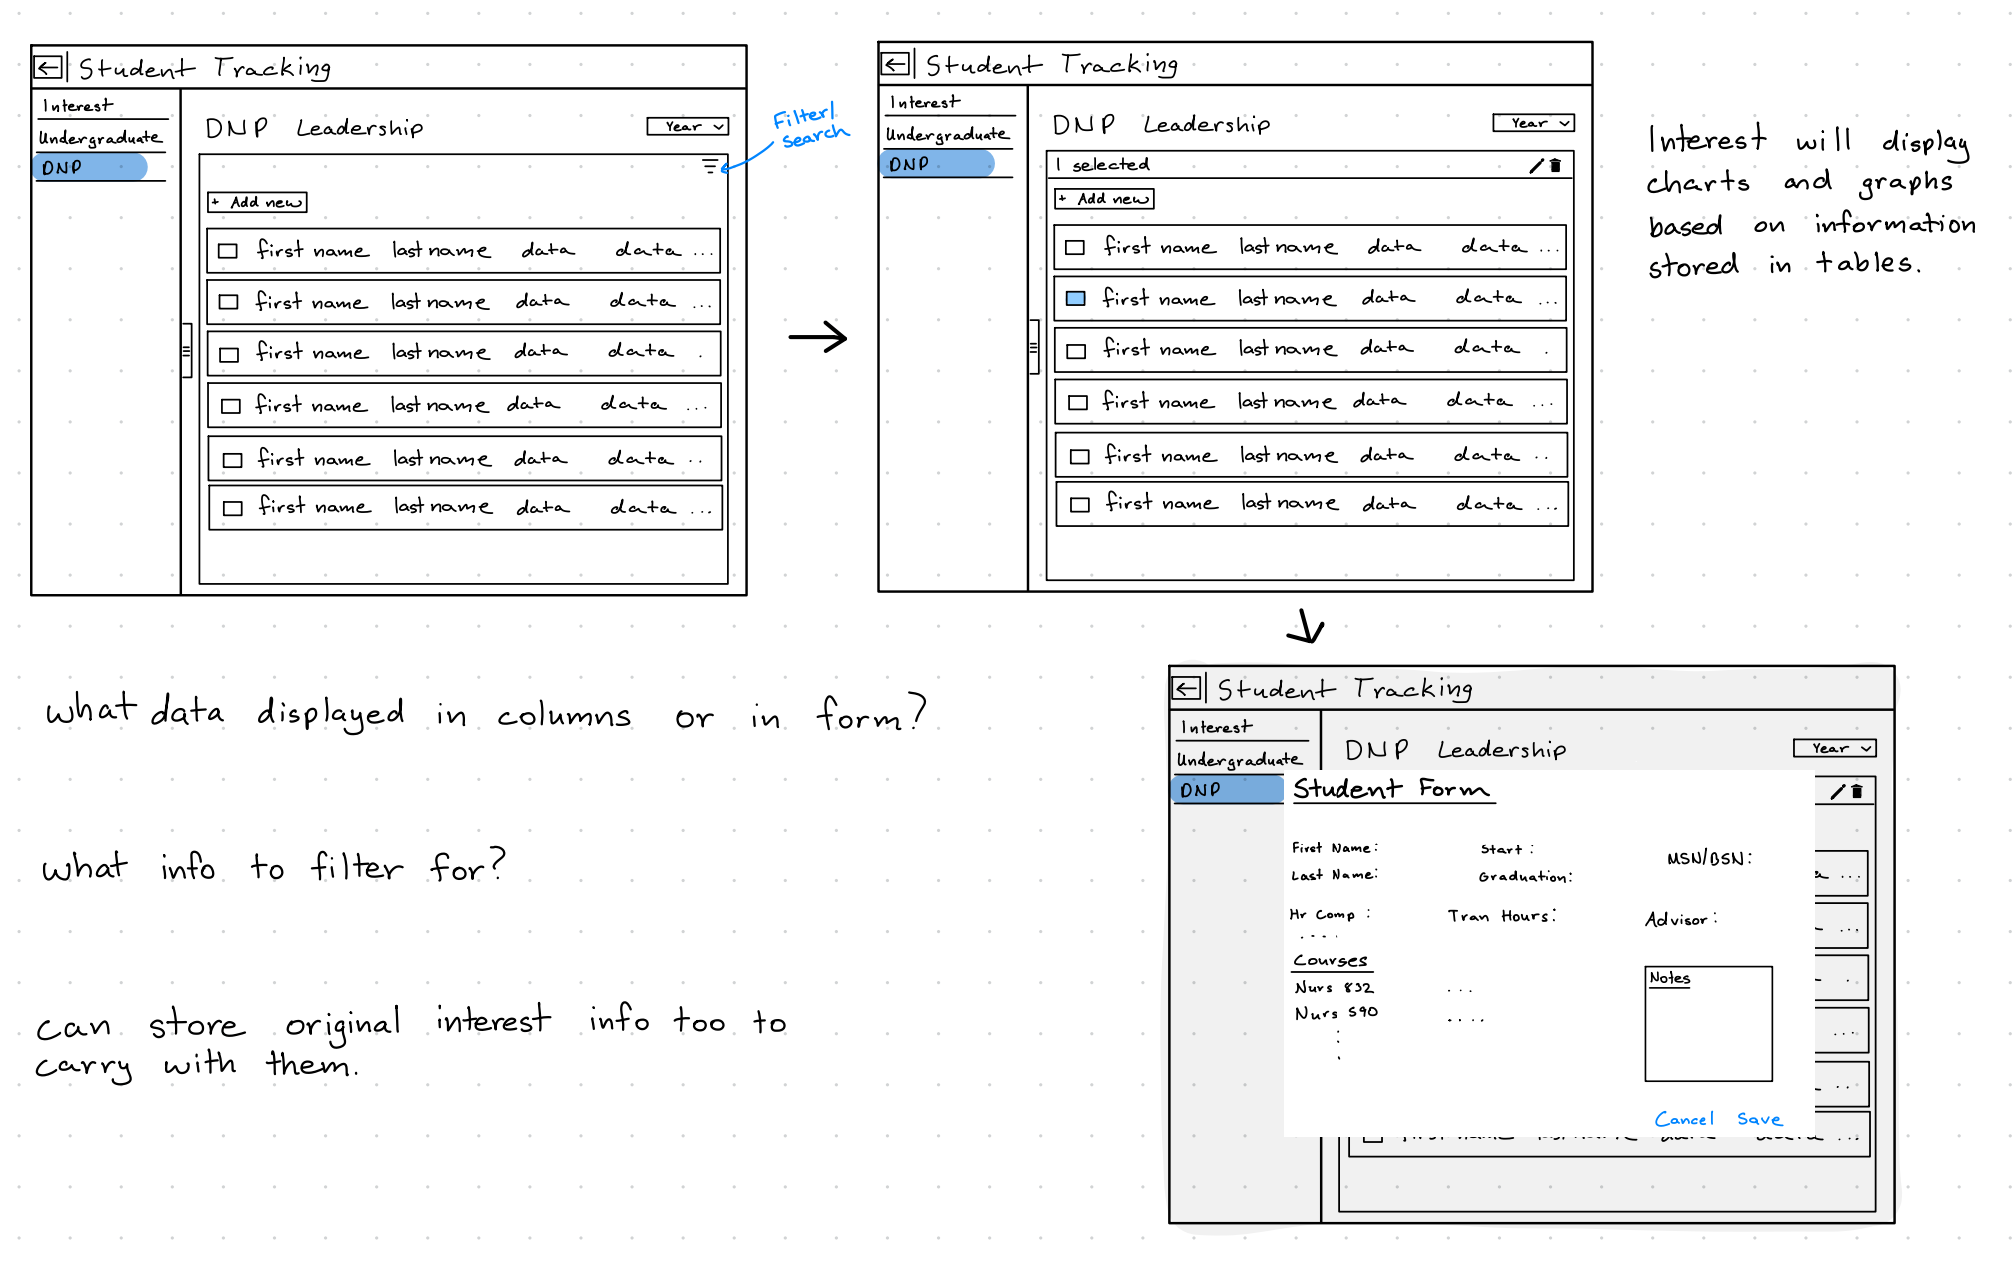 Student Tracking
Interest
Undergraduate
DNP
DNP Leadership
Year
Filter/
search
+ Add new
first name last name data data ...
first name last name data data ...
first name last name data data .
first name last name data data ...
first name last name data data ..
first name last name data data ...
Student Tracking
Interest
Undergraduate
DNP
DNP Leadership
Year
1 selected
+ Add new
first name last name data data ...
first name last name data data ...
first name last name data data .
first name last name data data ...
first name last name data data ..
first name last name data data ...
Interest will display
charts and graphs
based on information
stored in tables.
what data displayed in columns or in form?
what info to filter for?
can store original interest info too to
carry with them.
Student Tracking
Interest
Undergraduate
DNP
DNP Leadership
Year
Student Form
First Name: Start: MSN/BSN:
Last Name: Graduation:
Hr Comp: Tran Hours: Advisor:
....
Courses
Nurs 832 ...
Nurs 590 ....
Notes
Cancel Save